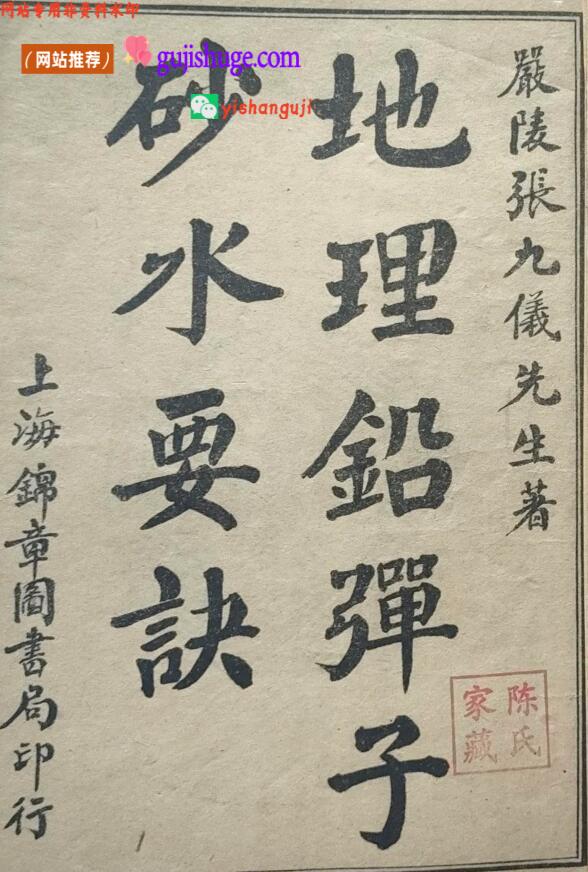 网站专用非资料水印
（网站推荐）
gujishuge.com
yishanguji
嚴陵張九儀先生著
地理鉛彈子
砂水要訣
上海錦章圖書局印行
陈氏
家藏